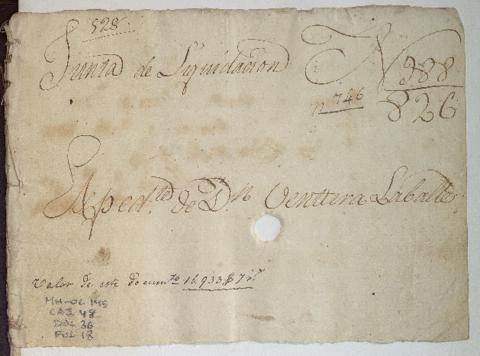 528
Junta de Liquidacion
N 988
826
nº 746
Exped.te de D.n Venttura Laballe
Valor de este documto 16.933 $ 7 r.s
MH-OL 145
CAJ 48
DOC 36
FOL 18